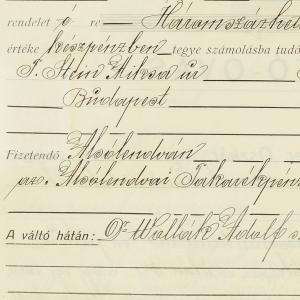 rendelet ő ré Háromszázhet
értéke készpénzben tegye számolásba tudó
T. Stein Miksa úr
Budapest
Fizetendő Alsólendván
az Alsólendvai Takarékpénz
A váltó hátán: Dr Wollák Adolf s